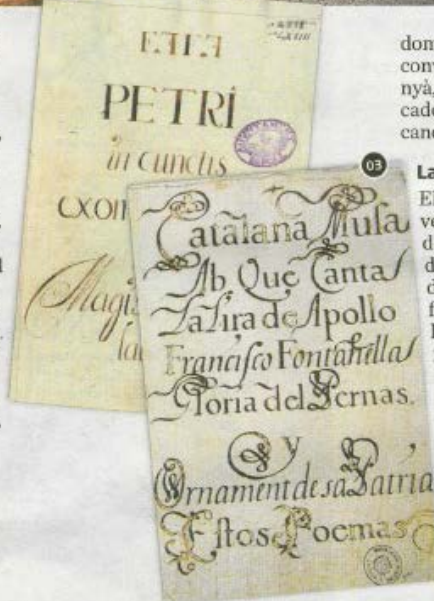 PETRI
in cunctis
03
Catalana Musa
Ab Que Canta
La Lira de Apollo
Francisco Fontanella
Gloria del Pernas.
Y
Ornament de sa Patria
Estos Poemas
dom
conv
nyà,
cade
cano
La
El
ve
d
d
d
f
l